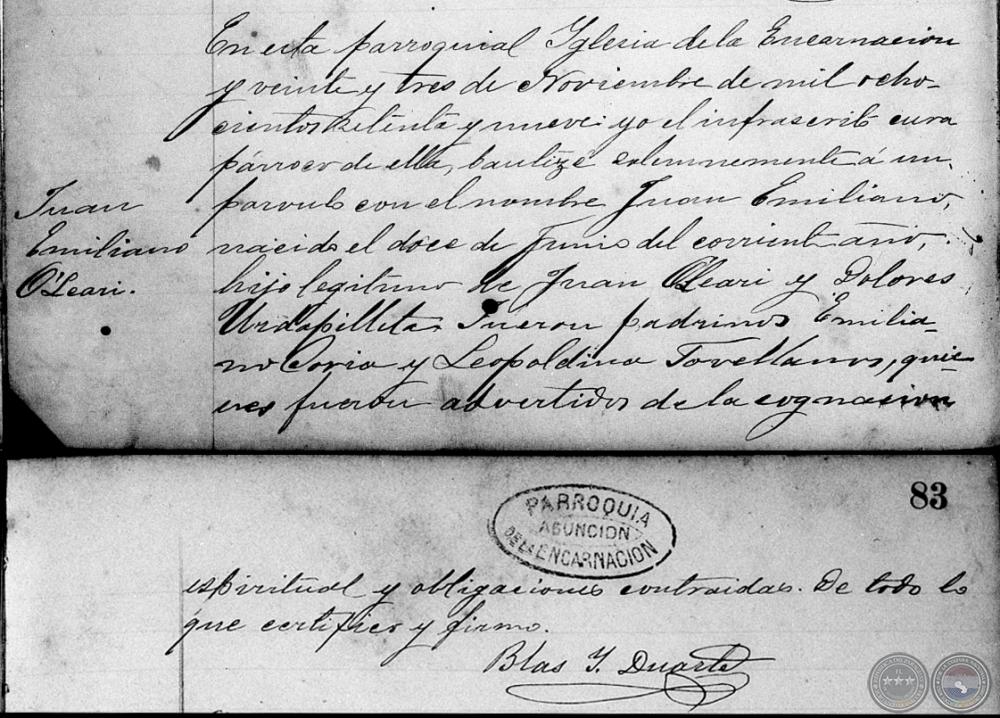 En esta parroquial Iglesia de la Encarnacion
y veinte y tres de Noviembre de mil ocho-
cientos setenta y nueve: yo el infrascrito cura
párroco de ella, bautizé solemnemente á un
parvulo con el nombre Juan Emiliano,
nacido el doce de Junio del corriente año,
hijo legitimo de Juan O'Leari y Dolores
Urdapilleta. Fueron padrinos Emilia-
no Coria y Leopoldina Jovellanos, quie-
nes fueron advertidos de la cognacion
Juan
Emiliano
O'Leari.
83
PARROQUIA
ASUNCION
DE LA ENCARNACION
espiritual y obligaciones contraidas. De todo lo
que certifico y firmo.
Blas Y. Duarte